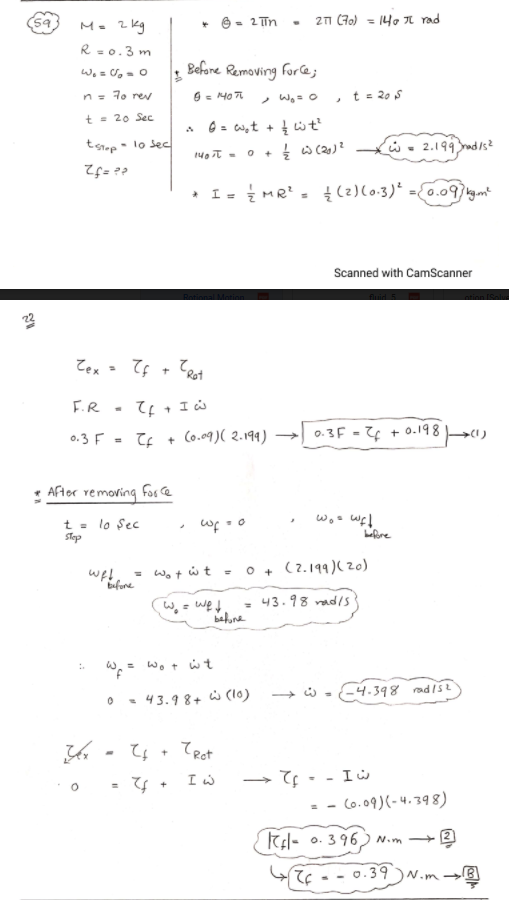 59
M = 2 kg
R = 0.3 m
ω₀ = σ₀ = 0
n = 70 rev
t = 20 Sec
t stop = 10 Sec
τf = ??
* θ = 2πn = 2π (70) = 140 π rad
* Before Removing Force;
θ = 140π , ω₀ = 0 , t = 20 S
∴ θ = ω₀t + 1/2 ω̇t²
140π = 0 + 1/2 ω̇ (20)² → ω̇ = 2.199 rad/s²
* I = 1/2 MR² = 1/2 (2)(0.3)² = 0.09 kg.m²
Scanned with CamScanner
22
τex = τf + τRot
F.R = τf + I ω̇
0.3 F = τf + (0.09)(2.199) → 0.3F = τf + 0.198 → (1)
* After removing Force
t stop = 10 Sec , ωf = 0 , ω₀ = ωf↓ before
ωf↓ before = ω₀ + ω̇ t = 0 + (2.199)(20)
ω₀ = ωf↓ before = 43.98 rad/s
∴ ωf = ω₀ + ω̇t
0 = 43.98 + ω̇ (10) → ω̇ = -4.398 rad/s²
τex = τf + τRot
0 = τf + I ω̇ → τf = - I ω̇
= - (0.09)(-4.398)
|τf| = 0.396 N.m → 2
↳ τf = - 0.39 N.m → B